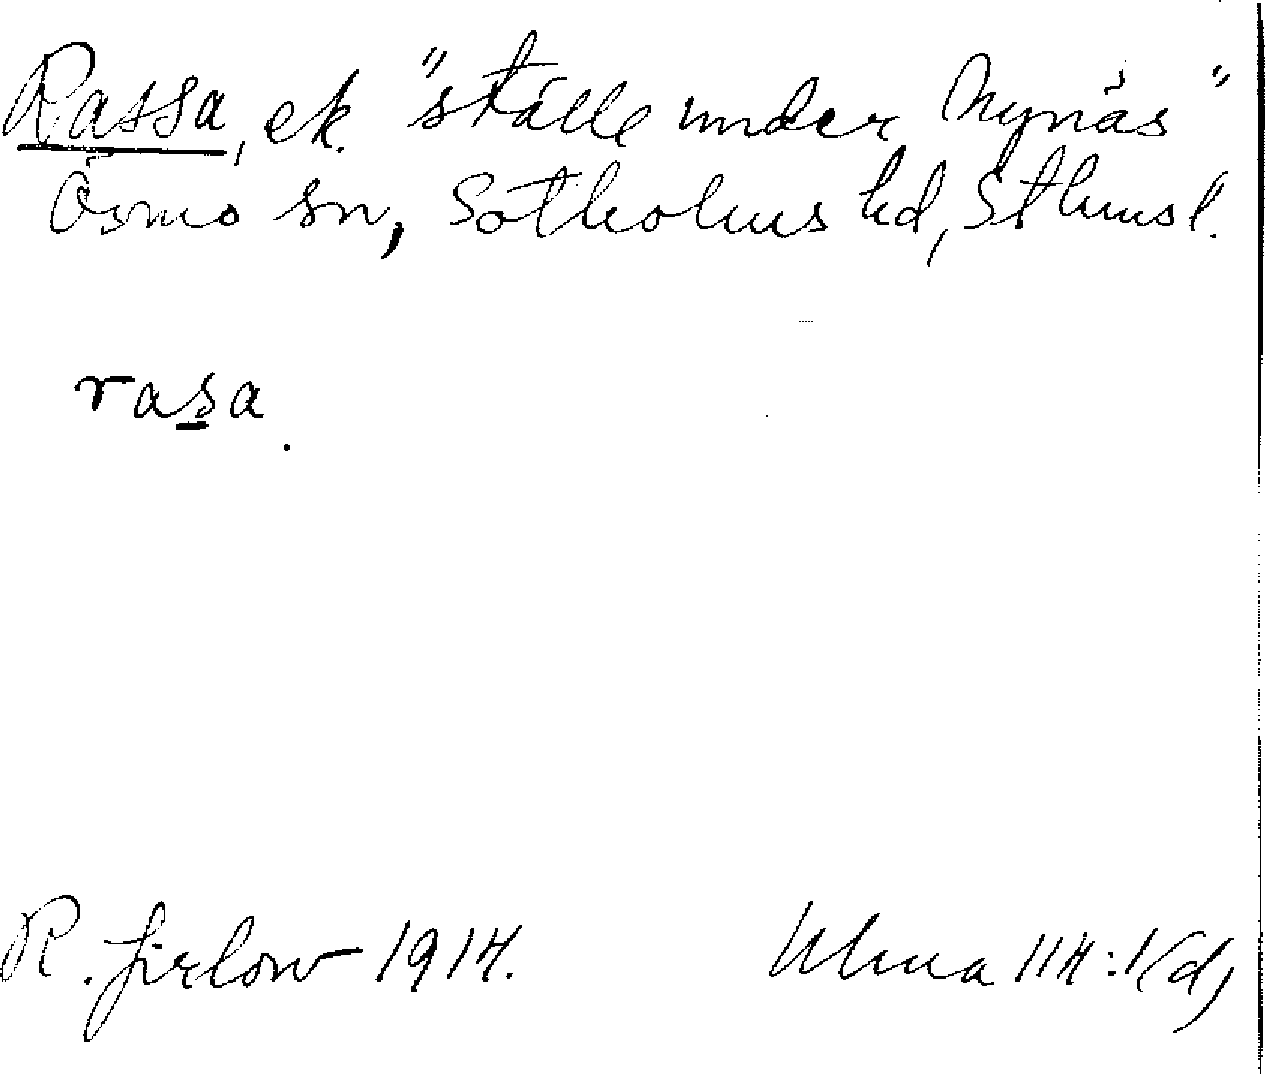 Rassa, ek. "ställe under Nynäs"
Ösmo sn, Sotholms hd, Sthmsl.
rasa.
R. Jirlow 1914.
Ulma 114:1(d)